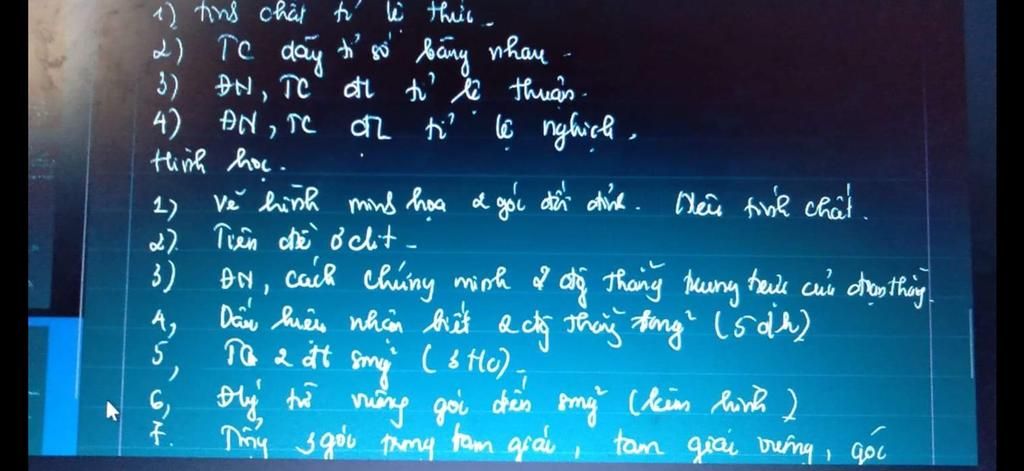 1) tính chất tỉ lệ thức.
2) TC dãy tỉ số bằng nhau.
3) ĐN, TC đl tỉ lệ thuận.
4) ĐN, TC đl tỉ lệ nghịch.
Hình học.
1) Vẽ hình minh họa 2 góc đối đỉnh. Nêu tính chất.
2) Tiên đề Ơclit.
3) ĐN, cách chứng minh 2 đg thẳng trung trực của đoạn thẳng.
4, Dấu hiệu nhận biết 2 đg thẳng song² (5 dh)
5, TC 2 đt song² (3 HC).
6, Đlý từ vuông góc đến song² (kèm hình)
7. Tổng 3 góc trong tam giác, tam giác vuông, góc